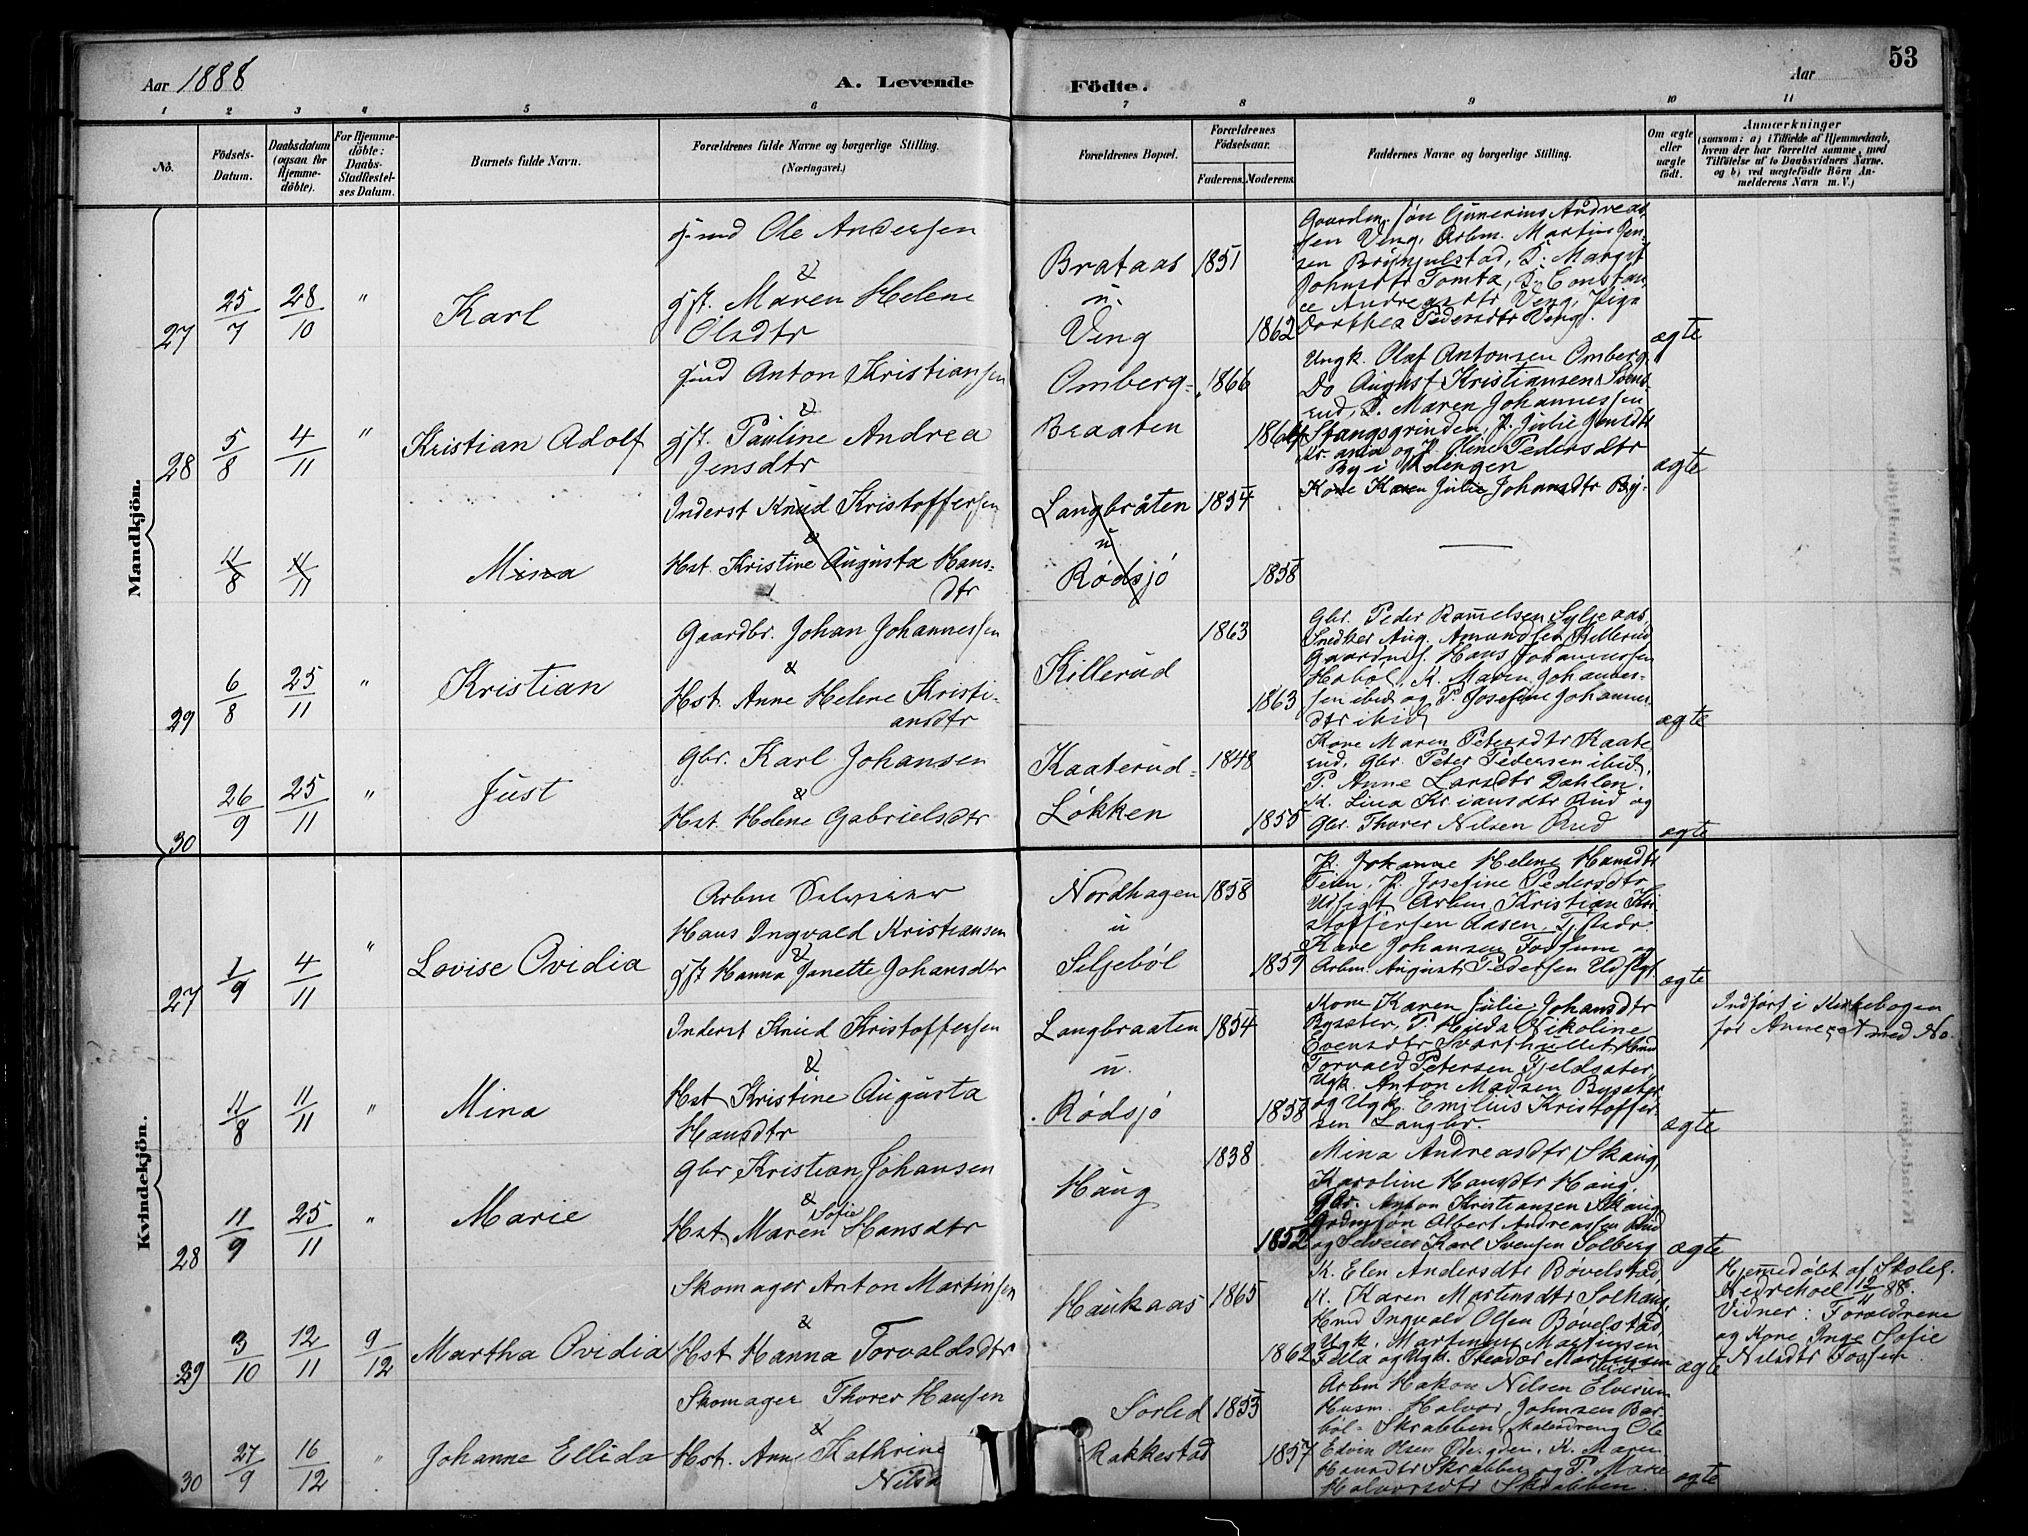 Aar 1888
A. Levende
Födte.
Aar
53
1 2 3 4 5 6 7 8 9 10 11
No.
Födsels-Datum.
Daabsdatum (ogsaa for Hjemme-döbte).
For Hjemme-döbte: Daabs-Stadfæstel-ses Datum.
Barnets fulde Navn.
Forældrenes fulde Navne og borgerlige Stilling.
(Næringsvei.)
Forældrenes Bopæl.
Forældrenes Födselsaar.
Faderens.
Moderens.
Faddernes Navne og borgerlige Stilling.
Om ægte eller uægte födt.
Anmærkninger
(saasom: a) i Tilfælde af Hjemmedaab, hvem der har forrettet samme, med Tilföielse af to Daabsvidners Navne. og b) ved uægtefödte Börn An-melderens Navn m. V.)
Mandkjön.
27 25/7 28/10 " Karl
Ole Andersen
&
gft. Maren Helene
Olsdtr
Brataas
u.
Veng
1851
1862
Gaardm. søn Gunerius Andreas
sen Veng, Arbm. Martin Jen
sen Brynjulstad, P. Margit
Johnsdtr Tomta, P. Constan
ce Andreasdtr Veng, Pige
Dorthea Pedersdtr Veng.
ægte
28 5/8 4/11 " Kristian Adolf
Anton Kristiansen
&
gft. Pauline Andrea
Jensdtr
Omberg-
Braaten
1866
1864
Ungk. Olaf Antonsen Omberg
Do August Kristiansen
rud, P. Maren Johannessen
Stangsgrinden, P. Julie Jensdtr
og P. Oline Pedersdtr
By i
ægte
11/8 11/11 Mina
Inderst Knud Kristoffersen
&
Hst. Kristine Augusta Hans-
dtr
Langbråten
u
Rødsjö
1854
1858
Kone Karen Julie Johansdtr By-
29 6/8 25/11 " Kristian
Gaardbr. Johan Johannessen
&
Hst. Anne Helene Kristi-
ansdtr
Killerud
1863
1863
Gbr. Peder Syljeaas
Snedker Aug. Amundsen Killerud
Hans Johannessen
Hobøl, K. Maren Johannes-
sen ibid og P. Josefine Johannes
dtr ibid
ægte
30 26/9 25/11 " Just
Gbr. Karl Johansen
&
Hst. Helene Gabrielsdtr
Kaaterud-
Løkken
1848
1855
Kone Maren Petersdtr Kaate
rud, Gbr. Peter Pedersen ibid,
P. Anne Larsdtr Dahlen,
K. Lina Kristiansdtr Rud og
Gbr. Thorer Nilsen Rud
ægte
Kvindekjön.
27 1/9 4/11 " Lovise Ovidia
Arbm
Hans Ingvald Kristiansen
&
gft Hanna Janette Johansdtr
Nordhagen
u
Seljebøl
1858
1859
P. Johanne Helene Hansdtr
Teien, P. Josefine Pedersdtr
Udsigt Arbm. Kristian Kri
stoffersen Aasen,
Kare Johansen Fossum og
Arbm. August Pedersen Udsigt
ægte
11/8 11/11 " Mina
Inderst Knud Kristoffersen
&
Hst Kristine Augusta
Hansdtr
Langbraaten
u.
Rødsjö
1854
1858
Kone Karen Julie Johansdtr
Bysæter, P. Hilda Nikoline
Evensdtr Svarthullet
Torvald Petersen Fjeldsæter
Ugk. Anton Madsen Bysæter
og Ugk. Emilius Kristoffer
sen Langbr.
ægte
Indført i Kirkebogen
for Annexet med No.
28 11/9 25/11 " Marie
Gbr Kristian Johansen
&
Hst. Maren Sofie Hansdtr
Haug
1838
1852
Mina Andreasdtr Skaug,
Karoline Hansdtr Haug
Gbr. Anton Kristiansen Skaug
Albert Andreassen Rud
og Selveier Karl Svensen Solberg
ægte
29 3/10 12/11 9/12 Martha Ovidia
Skomager Anton Martinsen
&
Hst Hanna Torvaldsdtr
Haukaas
1865
1862
K. Elen Andersdtr Bøvelstad,
K. Karen Martinsdtr Solhaug,
Ingvald Olsen Bøvelstad,
Ugk. Martinius Martinsen
og Ugk. Theodor Martinsen
ægte
Hjemmedøbt af Skolel.
Nedrehoel 12/11 88.
Vidner: Forældrene
og Kone Inge Sofie
Nilsdtr Fossen.
30 27/9 16/12 " Johanne Ellida
Skomager Thorer Hansen
&
Hst. Anne Kathrine
Nilsd
Sorlid
Rakkestad
1853
1857
Arbm Hakon Nilsen Elverum
Husm. Halvor Johnsen Bar
bøl- Skrabben, Skoledreng Ole
Edvin Olsen Ødegden, K. Maren
Hansdtr Skrabben og P. Marie
Halvorsdtr Skrabben.
ægte